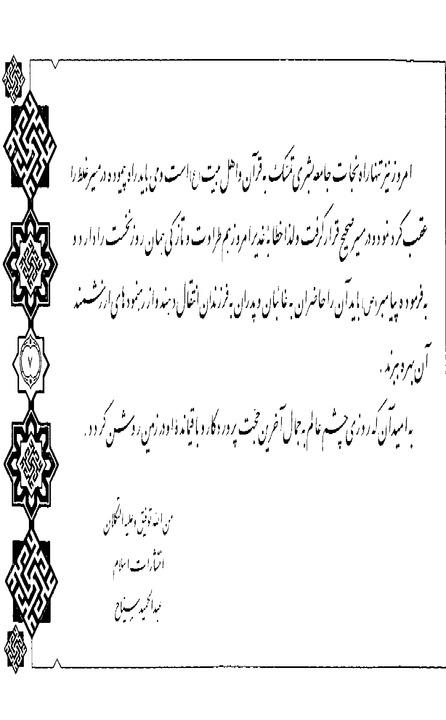 امروز نیز تنها راه نجات جامعه بشری تمسّک به قرآن و اهل بیت (ع) است و می باید راه پیموده در مسیر غلط را
عقب گرد نمود و در مسیر صحیح قرار گرفت و لذا خطابهٔ غدیر امروز هم طراوت و تازگی همان روز نخست را دارد و
به فرموده پیامبر (ص) باید آن را حاضران به غائبان و پدران به فرزندان انتقال دهند و از رهنمودهای ارزشمند
آن بهره ببرند.
به امید آن که روزی چشم عالم به جمال آخرین حجّت پروردگار و باقیماندهٔ او در زمین روشن گردد.
من الله توفیق و علیه التکلان
انتشارات اسلام
عبدالحمید
۷